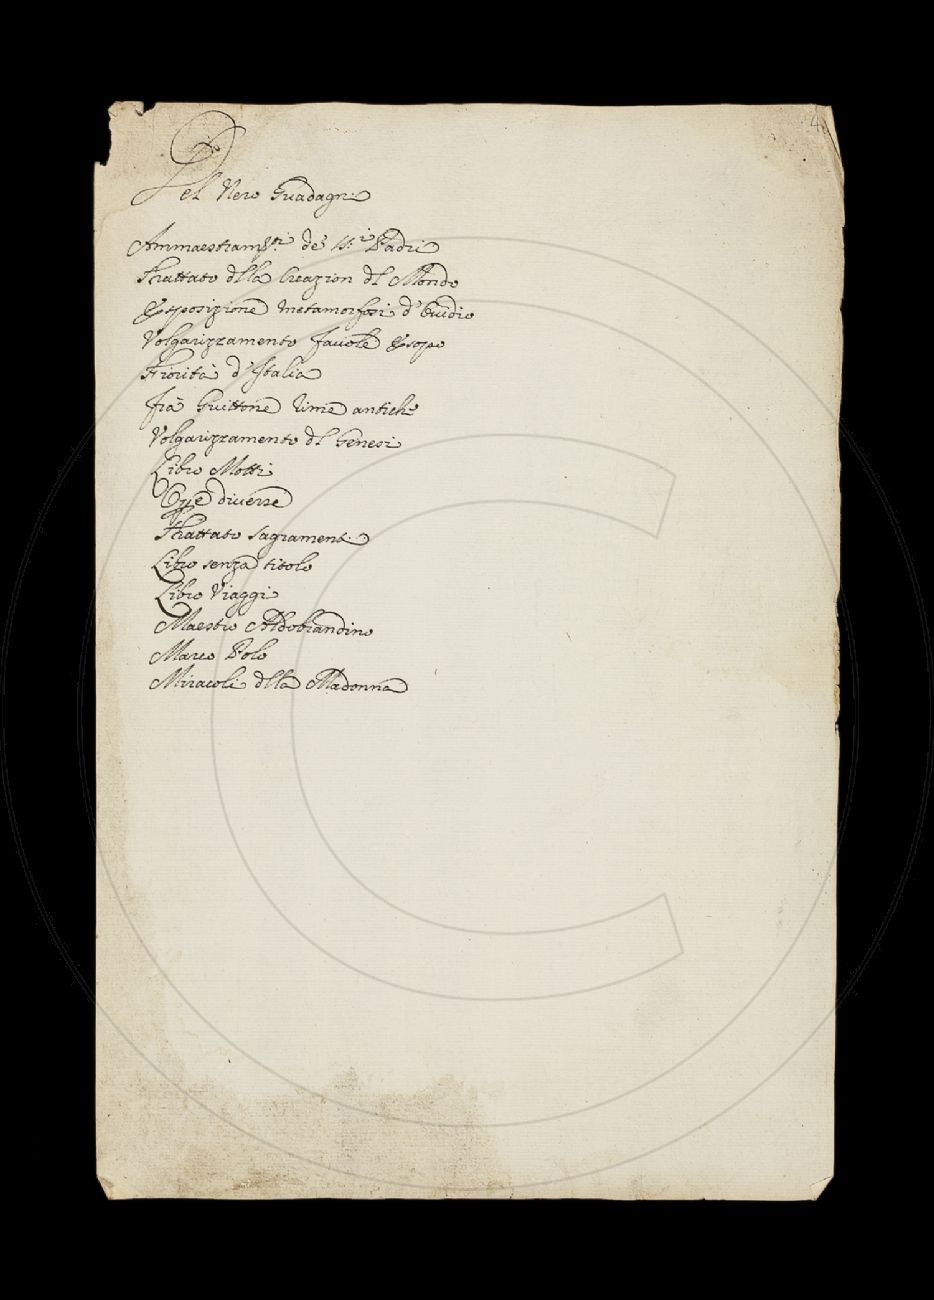 4
Del Nero Guadagni
Ammaestram.ti de' SS.i Padri
Trattato dlla Creazion dl Mondo
Esposizione metamorfosi d'Ouidio
Volgarizzamento fauole Esopo
Fiorità d'Italia
frà Guittone rime antiche
Volgarizzamento dl Genesi
Libro Motti
diuerse
Trattato sagramenti
Libro senza titolo
Libro Viaggi
Maestro Aldobrandino
Marco Polo
Miracoli dlla Madonna